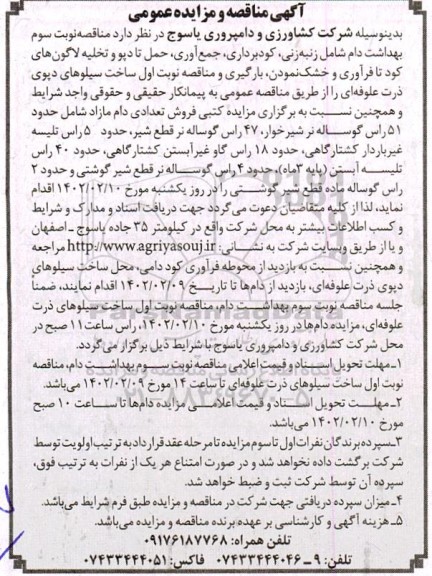 آگهی مناقصه و مزایده عمومی
بدینوسیله شرکت کشاورزی و دامپروری یاسوج در نظر دارد مناقصه نوبت سوم
بهداشت دام شامل زنبه‌زنی، کودبرداری، جمع‌آوری، حمل تا دپو و تخلیه لاگون‌های
کود تا فرآوری و خشک‌نمودن، بارگیری و مناقصه نوبت اول ساخت سیلوهای دپوی
ذرت علوفه‌ای را از طریق مناقصه عمومی به پیمانکار حقیقی و حقوقی واجد شرایط
و همچنین نسبت به برگزاری مزایده کتبی فروش تعدادی دام مازاد شامل حدود
۵۱ راس گوساله نر شیرخوار، ۴۷ راس گوساله نر قطع شیر، حدود ۵ راس تلیسه
غیرباردار کشتارگاهی، حدود ۱۸ راس گاو غیرآبستن کشتارگاهی، حدود ۴۰ راس
تلیسه آبستن (پایه ۳ماه)، حدود ۴ راس گوساله نر قطع شیر گوشتی و حدود ۲
راس گوساله ماده قطع شیر گوشتی را در روز یکشنبه مورخ ۱۴۰۲/۰۲/۱۰ اقدام
نماید، لذا از کلیه متقاضیان دعوت می‌گردد جهت دریافت اسناد و مدارک و شرایط
و کسب اطلاعات بیشتر به محل شرکت واقع در کیلومتر ۳۵ جاده یاسوج ـ اصفهان
و یا از طریق وبسایت شرکت به نشانی: http://www.agriyasouj.ir مراجعه
و همچنین نسبت به بازدید از محوطه فرآوری کود دامی، محل ساخت سیلوهای
دپوی ذرت علوفه‌ای، بازدید از دام‌ها تا تاریخ ۱۴۰۲/۰۲/۰۹ اقدام نمایند، ضمناً
جلسه مناقصه نوبت سوم بهداشت دام، مناقصه نوبت اول ساخت سیلوهای ذرت
علوفه‌ای، مزایده دام‌ها در روز یکشنبه مورخ ۱۴۰۲/۰۲/۱۰، راس ساعت ۱۱ صبح در
محل شرکت کشاورزی و دامپروری یاسوج با شرایط ذیل برگزار می‌گردد.
۱ـ مهلت تحویل اسناد و قیمت اعلامی مناقصه نوبت سوم بهداشت دام، مناقصه
نوبت اول ساخت سیلوهای ذرت علوفه‌ای تا ساعت ۱۴ مورخ ۱۴۰۲/۰۲/۰۹ می‌باشد.
۲ـ مهلت تحویل اسناد و قیمت اعلامی مزایده دام‌ها تا ساعت ۱۰ صبح
مورخ ۱۴۰۲/۰۲/۱۰ می‌باشد.
۳ـ سپرده برندگان نفرات اول تا سوم مزایده تا مرحله عقد قرارداد به ترتیب اولویت توسط
شرکت برگشت داده نخواهد شد و در صورت امتناع هر یک از نفرات به ترتیب فوق،
سپرده آن توسط شرکت ثبت و ضبط خواهد شد.
۴ـ میزان سپرده دریافتی جهت شرکت در مناقصه و مزایده طبق فرم شرایط می‌باشد.
۵ـ هزینه آگهی و کارشناسی بر عهده برنده مناقصه و مزایده می‌باشد.
تلفن همراه: ۰۹۱۷۶۱۸۷۷۶۸
تلفن: ۹ ـ ۰۷۴۳۳۴۴۴۰۴۶ فاکس: ۰۷۴۳۳۴۴۴۰۵۱